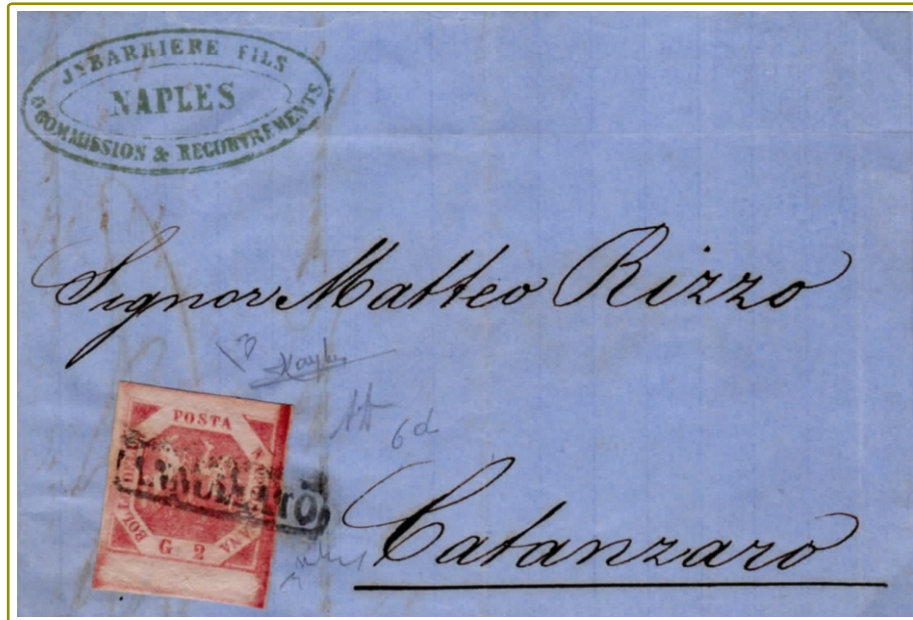 JH BARRIERE FILS
NAPLES
COMMISSION & RECOUVREMENTS
Signor Matteo Rizzo
6d
POSTA NAPOLETANA
BOLLO
G. 2
ANNULLATO
Catanzaro